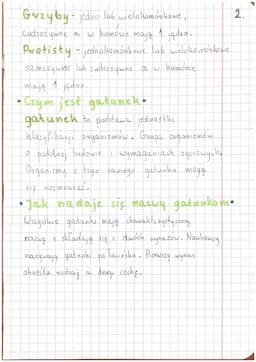 Grzyby - jedno lub wielokomórkowe, 2.
cudzożywne a w komórce mają 1 jądro.
Protisty - jednokomórkowe lub wielokomórkowe
samożywne lub cudzożywne a w komórce
mają 1 jądro.
• Czym jest gatunek •
gatunek to podstawa jednostki
klasyfikacji organizmów. Grupa organizmów
o podobnej budowie i wymaganiach życiowych.
Organizmy z tego samego gatunku mogą
się rozmnażać.
• Jak nadaje się nazwy gatunkom •
Wszystkie gatunki mają charakterystyczną
nazwę i składają się z dwóch wyrazów. Naukowcy
nazywają gatunki po łacińsku. Pierwszy wyraz
określa rodzaj a drugi cechę.